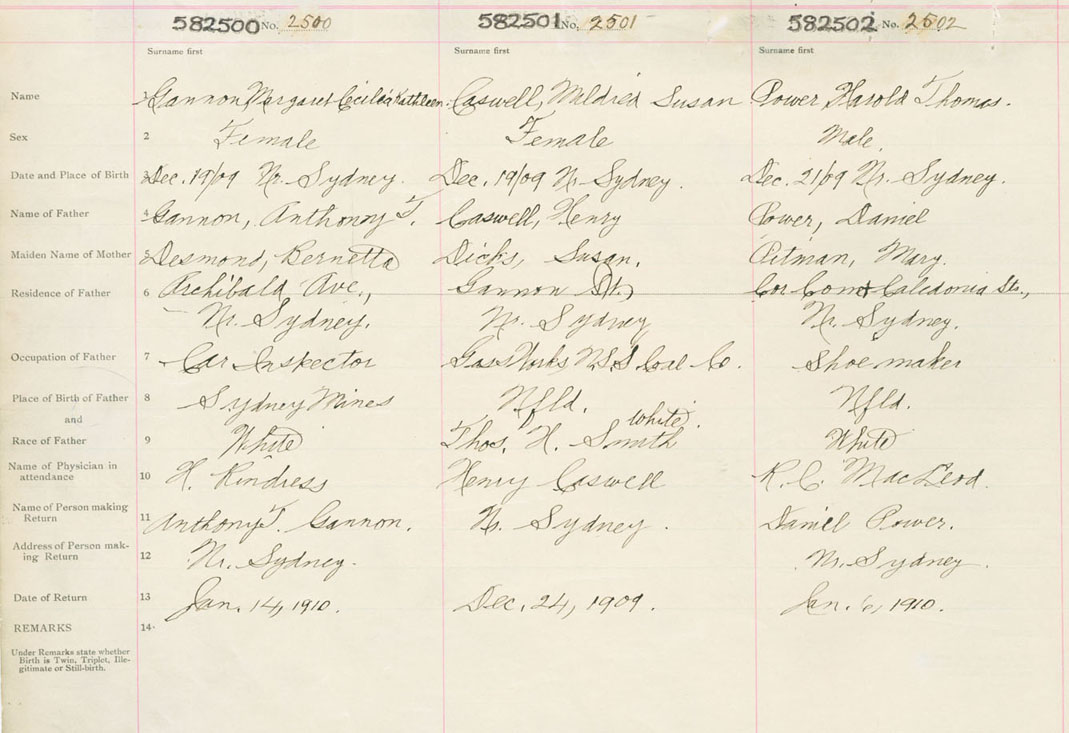 582500 No. 2500 582501 No. 2501 582502 No. 2502
Surname first Surname first Surname first
Name 1 Gannon, Margaret Cecilea Kathleen. Caswell, Mildred Susan Power, Harold Thomas.
Sex 2 Female Female Male.
Date and Place of Birth 3 Dec. 19/09 Nr. Sydney. Dec. 19/09 Nr. Sydney. Dec. 21/09 Nr. Sydney.
Name of Father 4 Gannon, Anthonoy T. Caswell, Henry Power, Daniel
Maiden Name of Mother 5 Desmond, Bernetta Dicks, Susan. Pitman, Mary.
Residence of Father 6 Archibald Ave., Gannon St., Cor Com & Caledonia Sts.,
Nr. Sydney. Nr. Sydney Nr. Sydney.
Occupation of Father 7 Car Inspector Gas Works N.S.S. Coal Co. Shoemaker
Place of Birth of Father 8 Sydney Mines Nfld. Nfld.
and white.
Race of Father 9 White Thos. H. Smith White
Name of Physician in
attendance 10 H. Rindress Henry Caswell R. C. MacLeod.
Name of Person making
Return 11 Anthony T. Gannon. Nr. Sydney. Daniel Power.
Address of Person mak-
ing Return 12 Nr. Sydney. Nr. Sydney.
Date of Return 13 Jan. 14, 1910. Dec. 24, 1909. Jan. 6, 1910.
REMARKS 14.
Under Remarks state whether
Birth is Twin, Triplet, Ille-
gitimate or Still-birth.